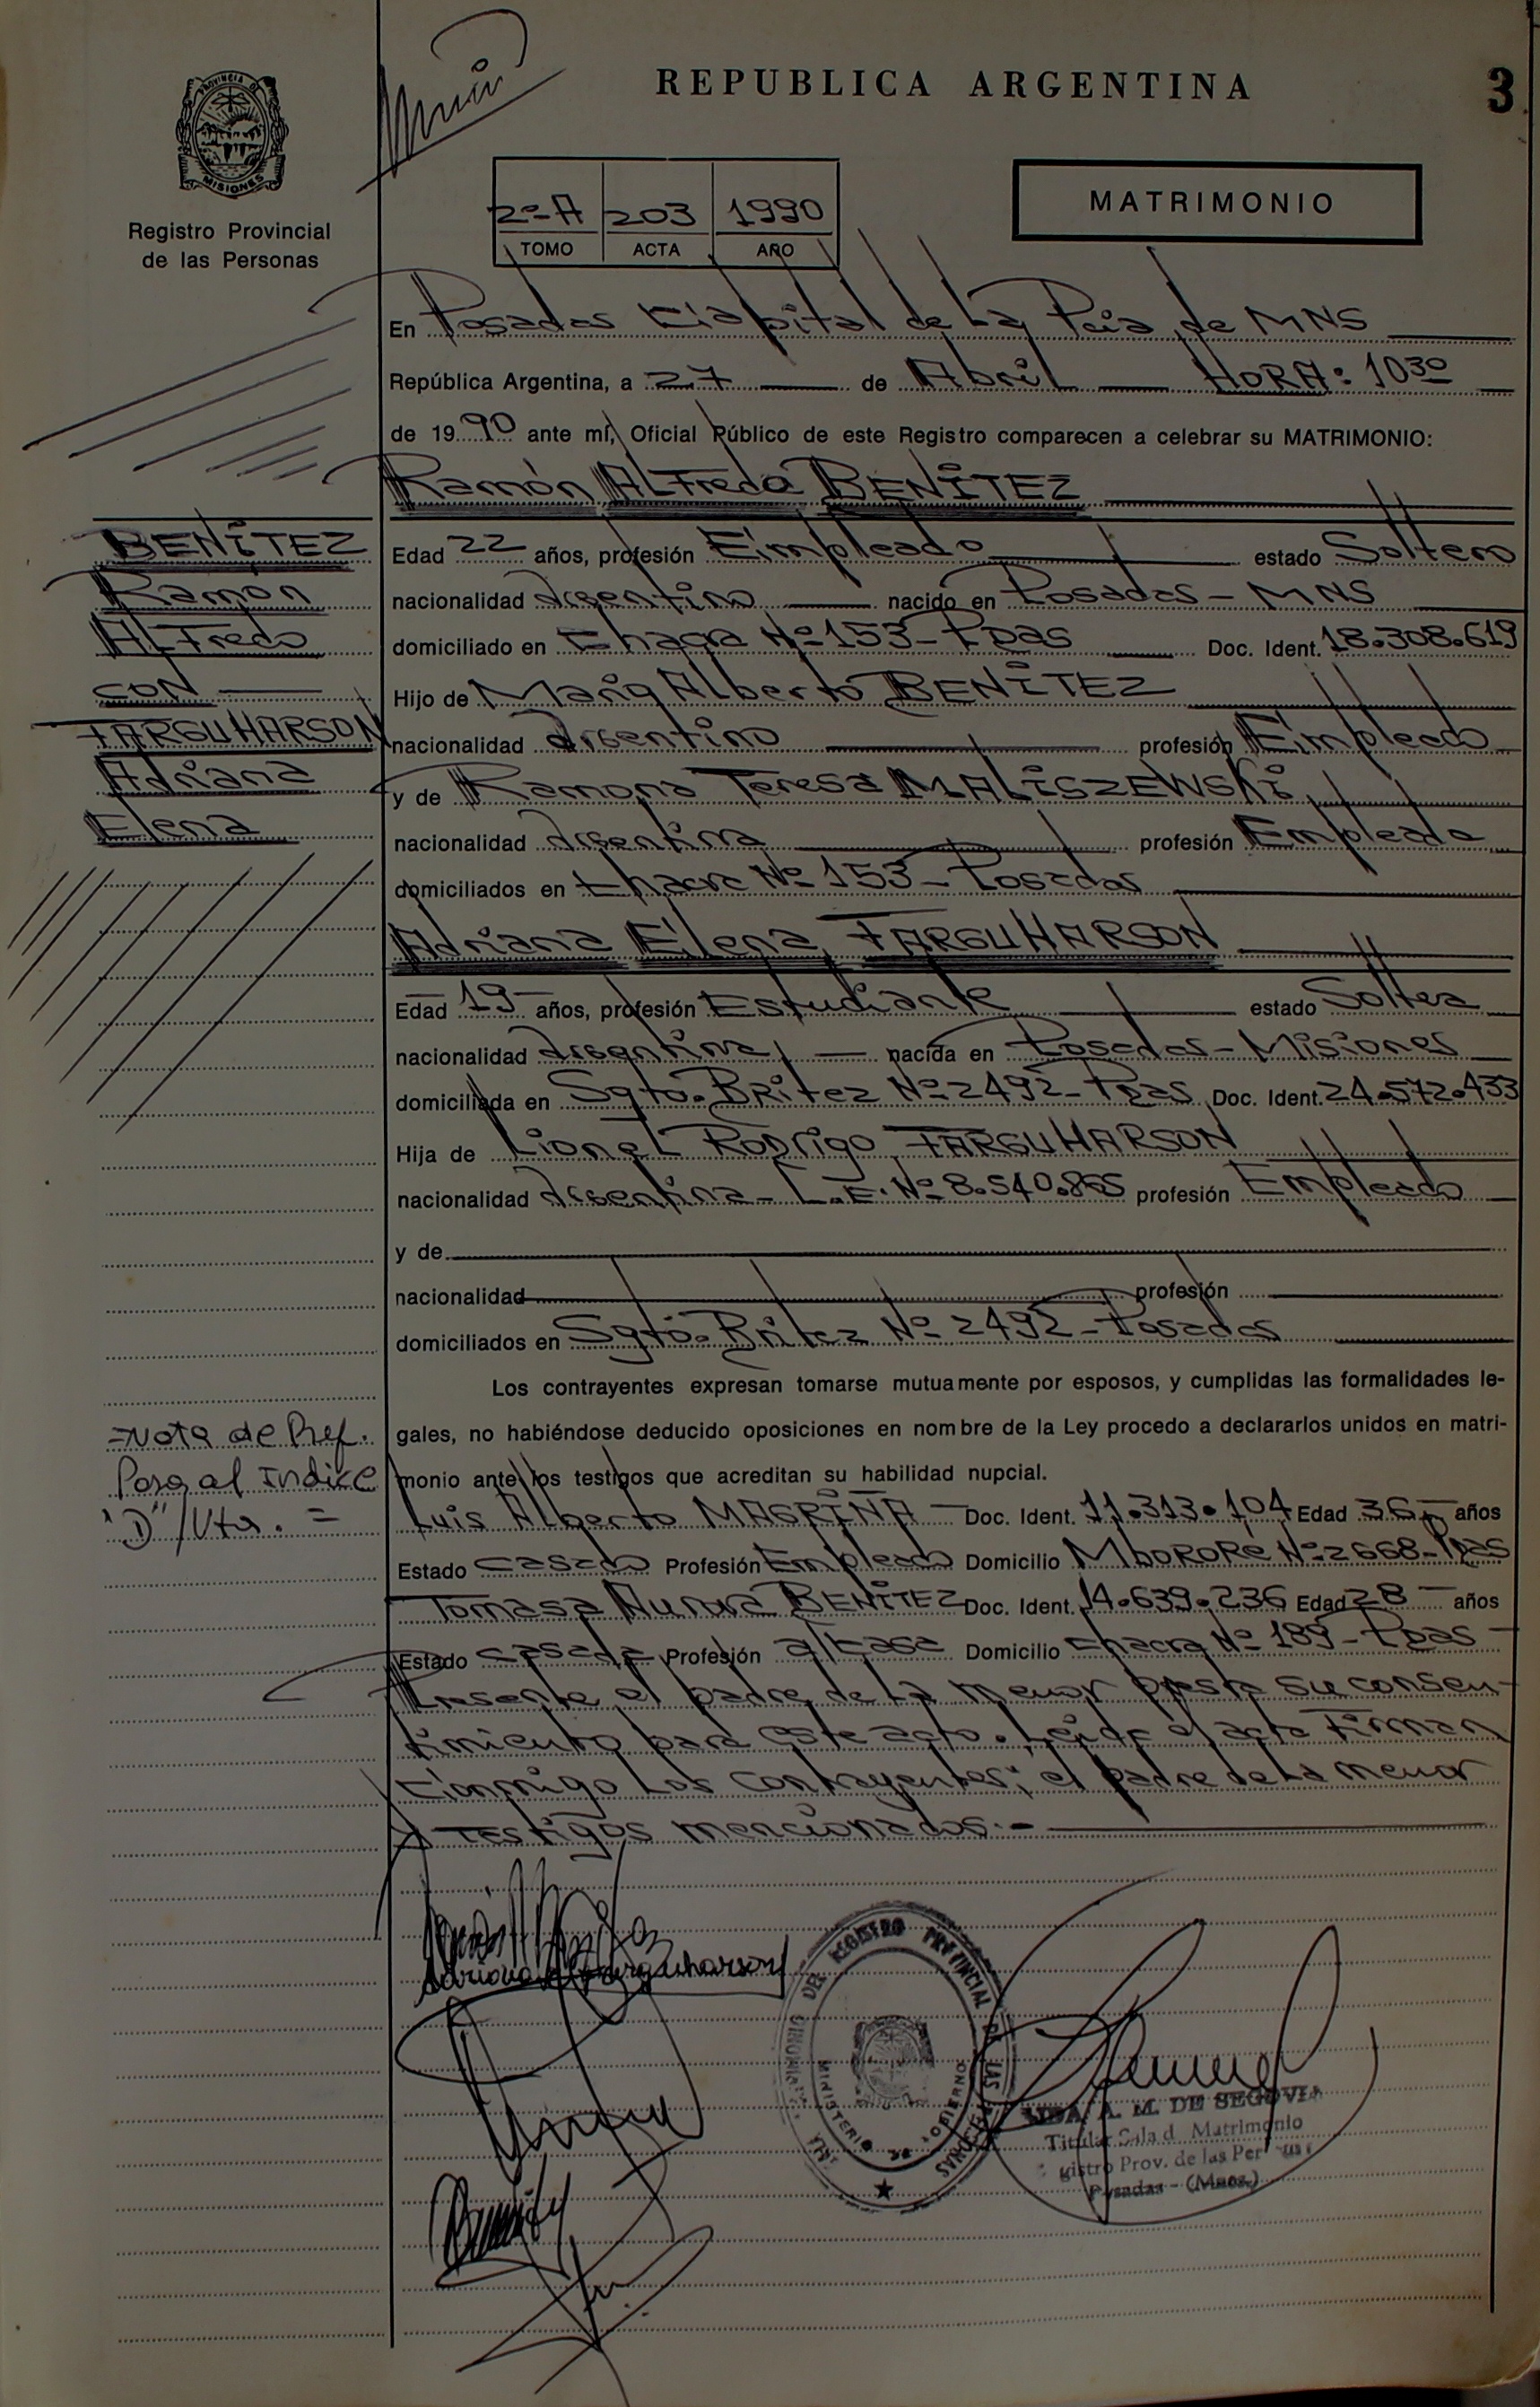 REPUBLICA ARGENTINA
3
PROVINCIA DE
MISIONES
Registro Provincial
de las Personas
2º-A 203 1990
TOMO ACTA AÑO
MATRIMONIO
En Posadas Capital de La Pcia de MNS
República Argentina, a 27 de Abril HORA: 10³⁰
de 1990 ante mí, Oficial Público de este Registro comparecen a celebrar su MATRIMONIO:
Ramón ALFredo BENÍTEZ
Edad 22 años, profesión Empleado estado Soltero
nacionalidad argentino nacido en Posadas - MNS
domiciliado en Chacra Nº 153 - Pdas Doc. Ident. 18.308.619
Hijo de Alberto BENÍTEZ
nacionalidad argentino profesión Empleado
y de Ramona Teresa MALISZEWSKI
nacionalidad argentina profesión Empleada
domiciliados en Chacra Nº 153 - Posadas
Adriana Elena FARGUHARSON
Edad 19 años, profesión Estudiante estado Soltera
nacionalidad argentina nacida en Posadas - Misiones
domiciliada en Sgto. Britez Nº 2492 - Pdas Doc. Ident. 24.572.433
Hija de Lionel Rodrigo FARGUHARSON
nacionalidad argentina - L.E. Nº 8.540.865 profesión Empleado
y de
nacionalidad profesión
domiciliados en Sgto. Britez Nº 2492 - Posadas
Los contrayentes expresan tomarse mutuamente por esposos, y cumplidas las formalidades le-
gales, no habiéndose deducido oposiciones en nombre de la Ley procedo a declararlos unidos en matri-
monio ante los testigos que acreditan su habilidad nupcial.
Luis Alberto MAGRIÑA Doc. Ident. 11.313.104 Edad 36 años
Estado casado Profesión Empleado Domicilio Mbororé Nº 2668 - Pdas
Tomasa Aurora BENÍTEZ Doc. Ident. 14.639.236 Edad 28 años
Estado casada Profesión q/casa Domicilio Chacra Nº 189 - Pdas
Presente el padre de La menor presta su consen-
timiento para este acto. Leída el acta Firman
conmigo Los contrayentes; el padre de La menor
y testigos mencionados.-
BENÍTEZ
Ramón
ALFredo
CON
FARGUHARSON
Adriana
Elena
=Nota de Ref.
Pasa al Indice
"D"/Vta. =
Adriana E Farguharson
DEL REGISTRO PROVINCIAL DE LAS PERSONAS
MINISTERIO DE GOBIERNO
LIDA A. M. DE SEGOVIA
Titular Sala d Matrimonio
gistro Prov. de las Per
Posadas - (Mnes.)